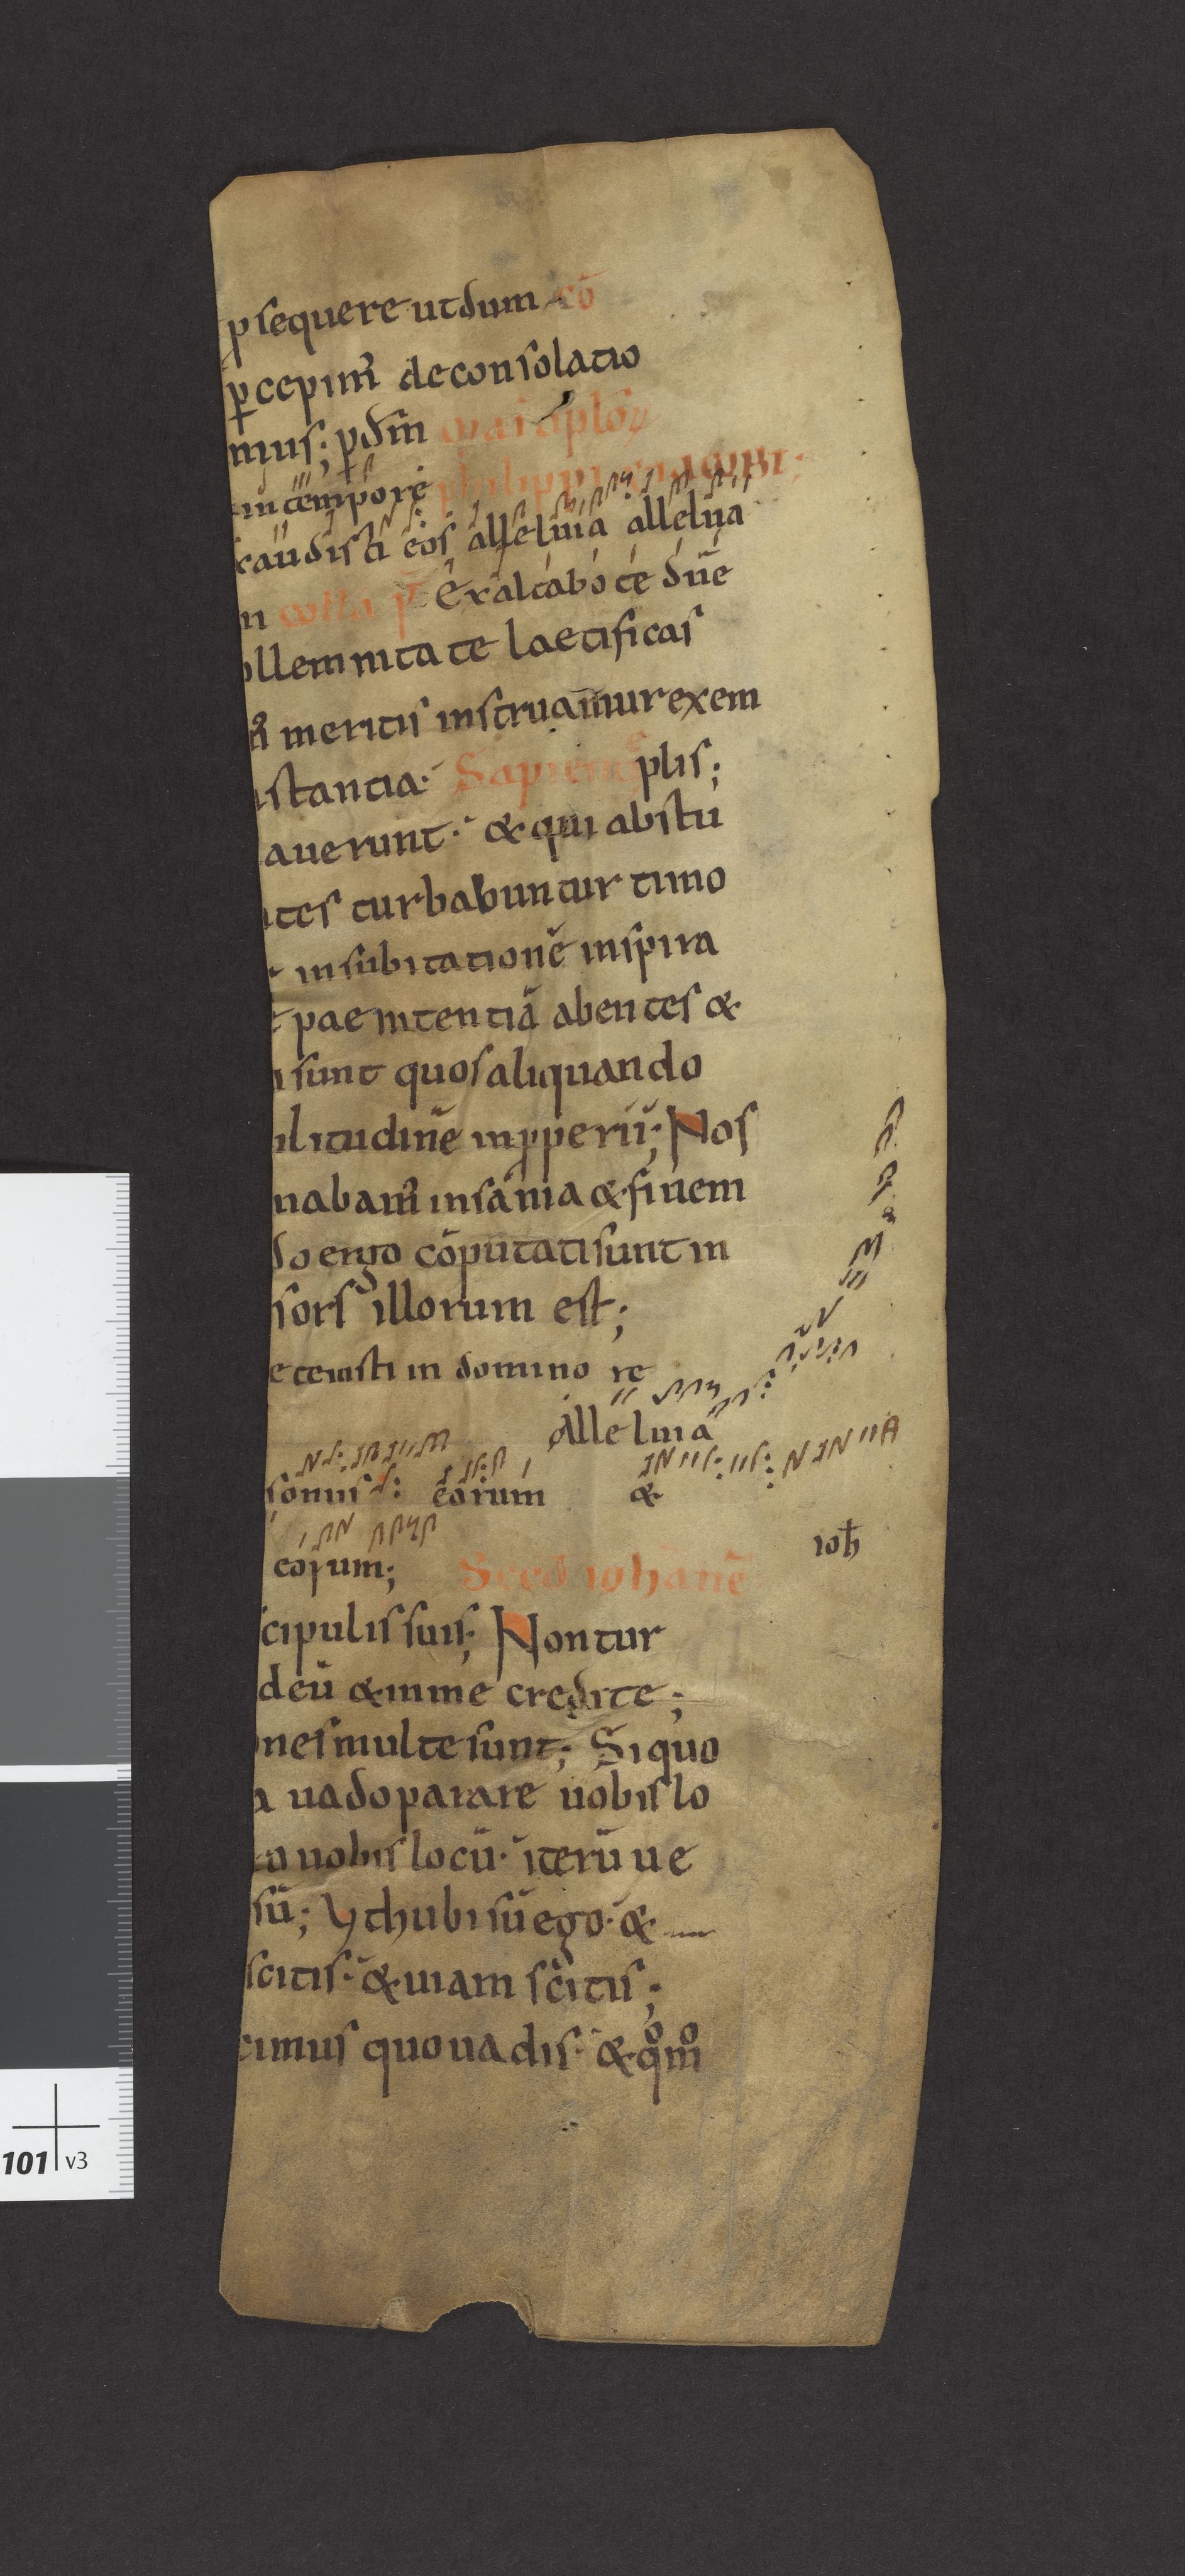 ꝓsequere ut dum cō
ꝑcepim᷒ de consolatio
mus; ꝑ dm̄ Mai aplōꝝ
in tempore philippi & iacobi;
xaudisti eos alleluia alleluia
n colla pꝭ Exaltabo te dn̄e
ollemnitate laetificas
n᷒ meritis instruamur exem
ıstantia· Sapien plis;
auerunt· & qui abstu
ntes turbabuntur timo
insubitationē inspira
t paenitentiā abentes &
i sunt quos aliquando
ilitudinē inꝓperii; Nos
nabam᷒ insania & finem
do ergo cōputati sunt in
sors illorum est;
e ceinsti in domino re
Alleluia
sonus eorum &
eorum; Scd̄ iohannē ioħ
cipulis suis; Non tur
deū & in me credite;
ones multe sunt; Si quo
a uado parare uobis lo
ro uobis locū· iterū ue
sū; Ut hubi sū ego· &
scitis· & uiam scitis;
cimus quo uadis· & qͦmͦ